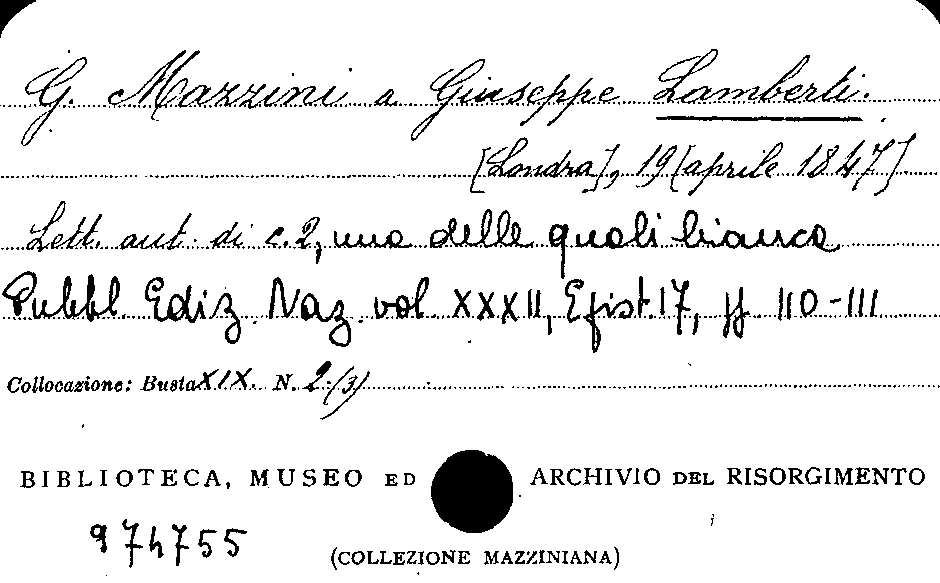 G. Mazzini a Giuseppe Lamberti.
[Londra], 19 [aprile 1847]
Lett. aut. di c. 2, una delle quali bianca
Pubbl. Ediz. Naz. vol. XXXII, Epist. 17, pp. 110-111
Collocazione: Busta XIX. N. 2 (3)
BIBLIOTECA, MUSEO ED ARCHIVIO DEL RISORGIMENTO
974755
(COLLEZIONE MAZZINIANA)